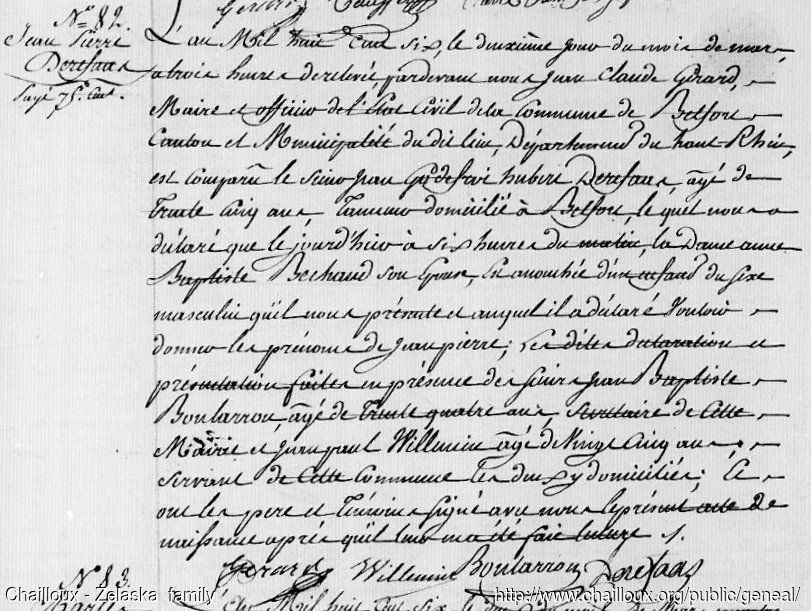 N.º 82.
Jean Pierre
Derefaas
L'an Mil huit Cent six, le deuxième jour du mois de mars,
à trois heures de relevée, pardevant nous Jean Claude Gérard,
Maire et officier de l'Etat Civil de la Commune de Belfort
Canton et Municipalité du dit lieu, Département du haut-Rhin,
est comparu le sieur Jean Godefroi hubert Derefaas, âgé de
Trente Cinq ans, domicilié à Belfort, lequel nous a
déclaré que le jourd'hier à six heures du matin, la Dame anne
Baptiste Bechaud son Epouse, Est accouchée d'un enfant du sexe
masculin qu'il nous présente et auquel il a déclaré Vouloir
donner les prénoms de Jean pierre; Les dites déclaration et
présentation faites en présence des sieurs Jean Baptiste
Boularrou, âgé de Trente quatre ans, Secrétaire de Cette
Mairie et Jean paul Willemin âgé de Vingt Cinq ans
servant de Cette Commune les deux y domiciliés; Et
ont les pere et Témoins signé avec nous le présent acte de
naissance après qu'il leur en a été fait lecture.
Gerard Willemin Boularrou Derefaas
N.º 83.
L'an Mil huit Cent six le
Chailloux - Zelaska family
http://www.chailloux.org/public/geneal/